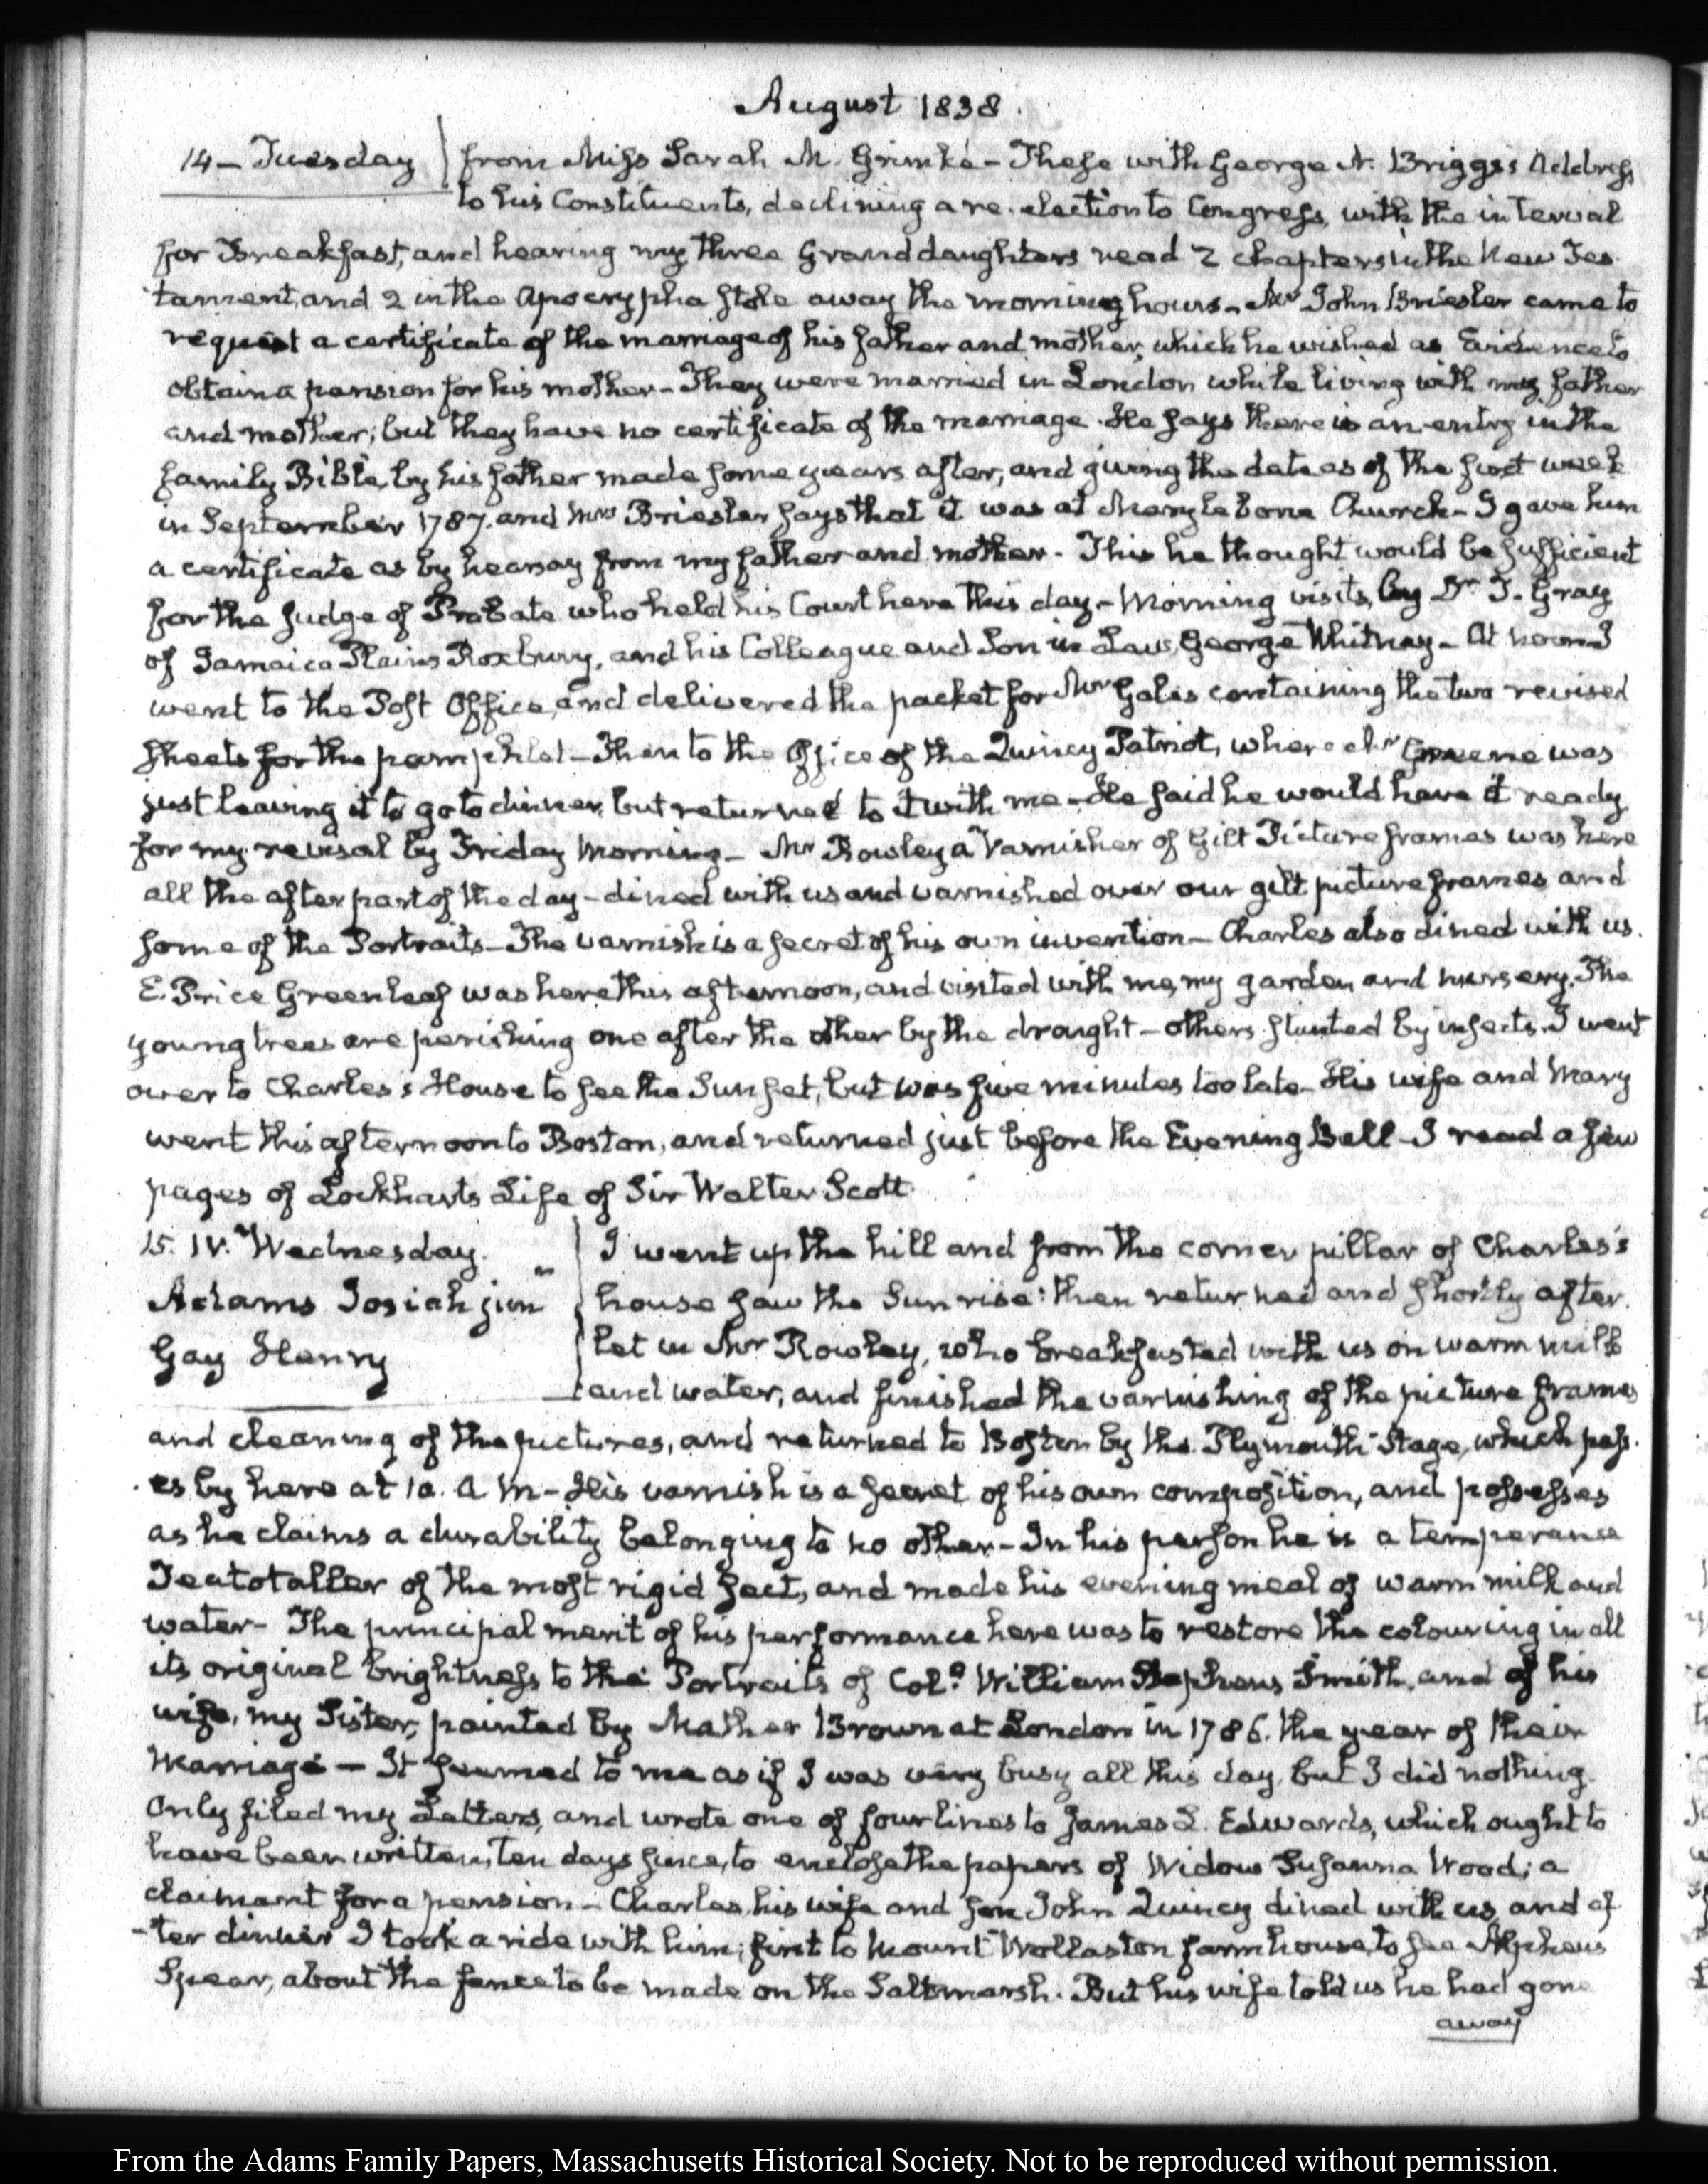 August 1838.
14 – Tuesday from Miss Sarah M. Grimké – These with George N. Briggs's Address
to his Constituents, declining a re-election to Congress, with the interval
for Breakfast, and hearing my three Granddaughters read 2 chapters in the New Tes-
tament, and 2 in the Apocrypha stole away the morning hours – Mr John Briesler came to
request a certificate of the marriage of his father and mother, which he wished as Evidence to
obtain a pension for his mother – They were married in London while living with my father
and mother; but they have no certificate of the marriage. He says there is an entry in the
family Bible, by his father made some years after, and giving the date as of the first week
in September 1787. and Mrs Briesler says that it was at Marylebone Church – I gave him
a certificate as by hearsay from my father and mother – This he thought would be sufficient
for the Judge of Probate who held his Court here this day – Morning visits, by Dr. T. Gray
of Jamaica Plains Roxbury, and his Colleague and Son in Law, George Whitney – At noon I
went to the Post Office, and delivered the packet for Mr Gales containing the two revised
sheets for the pamphlet – Then to the Office of the Quincy Patriot, where Mr Greene was
just leaving it to go to dinner, but returned to it with me – He said he would have it ready
for my revisal by Friday Morning – Mr Rowley a Varnisher of Gilt Picture frames was here
all the after part of the day – dined with us and varnished over our gilt picture frames and
some of the Portraits – The varnish is a secret of his own invention – Charles also dined with us.
E. Price Greenleaf was here this afternoon, and visited with me, my garden and nursery. The
young trees are perishing one after the other by the draught – others stunted by insects. I went
over to Charles's House to see the Sun set, but was five minutes too late – His wife and Mary
went this afternoon to Boston, and returned just before the Evening Bell – I read a few
pages of Lockharts Life of Sir Walter Scott.
15. IV. Wednesday. I went up the hill and from the corner pillar of Charles's
Adams Josiah junr house saw the Sun rise: then returned and shortly after
Gay Henry let in Mr Rowley, who breakfasted with us on warm milk
and water, and finished the varnishing of the picture frames
and cleaning of the pictures, and returned to Boston by the Plymouth Stage, which pass-
es by here at 10. A M – His varnish is a secret of his own composition, and possesses
as he claims a durability belonging to no other – In his person he is a temperance
Teatotaller of the most rigid sect, and made his evening meal of warm milk and
water – The principal merit of his performance here was to restore the colouring in all
its original brightness to the Portraits of Colo. William Stephens Smith, and of his
wife, my Sister, painted by Mather Brown at London in 1786. the year of their
Marriage – It seemed to me as if I was very busy all this day, but I did nothing.
Only filed my Letters, and wrote one of four lines to James L. Edwards, which ought to
have been written, ten days since, to enclose the papers of Widow Susanna Wood; a
claimant for a pension – Charles, his wife and son John Quincy dined with us, and af
-ter dinner I took a ride with him; first to Mount Wollaston farm house, to see Alpheus
Spear, about the fence to be made on the Saltmarsh. But his wife told us he had gone
away
From the Adams Family Papers, Massachusetts Historical Society. Not to be reproduced without permission.